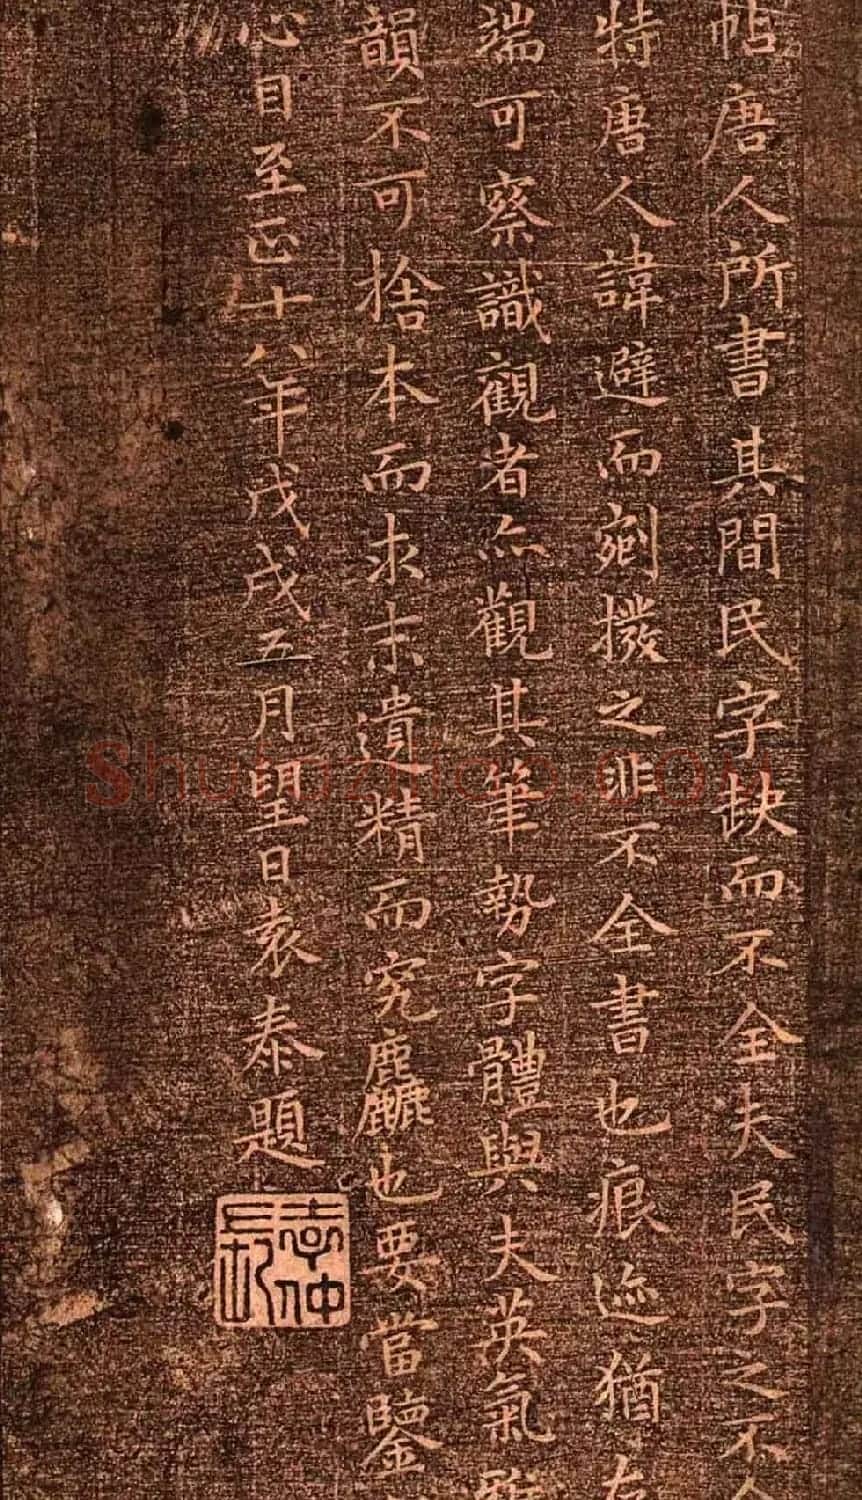 帖唐人所書其間民字缺而不全夫民字之不全
特唐人諱避而剜撥之非不全書也痕迹猶存
端可察識觀者亦觀其筆勢字體與夫英氣雅
韻不可捨本而求末遺精而究麤也要當鑒
心目至正十八年戊戌五月望日袁泰題
袁仲長印
Shufazidian.COM